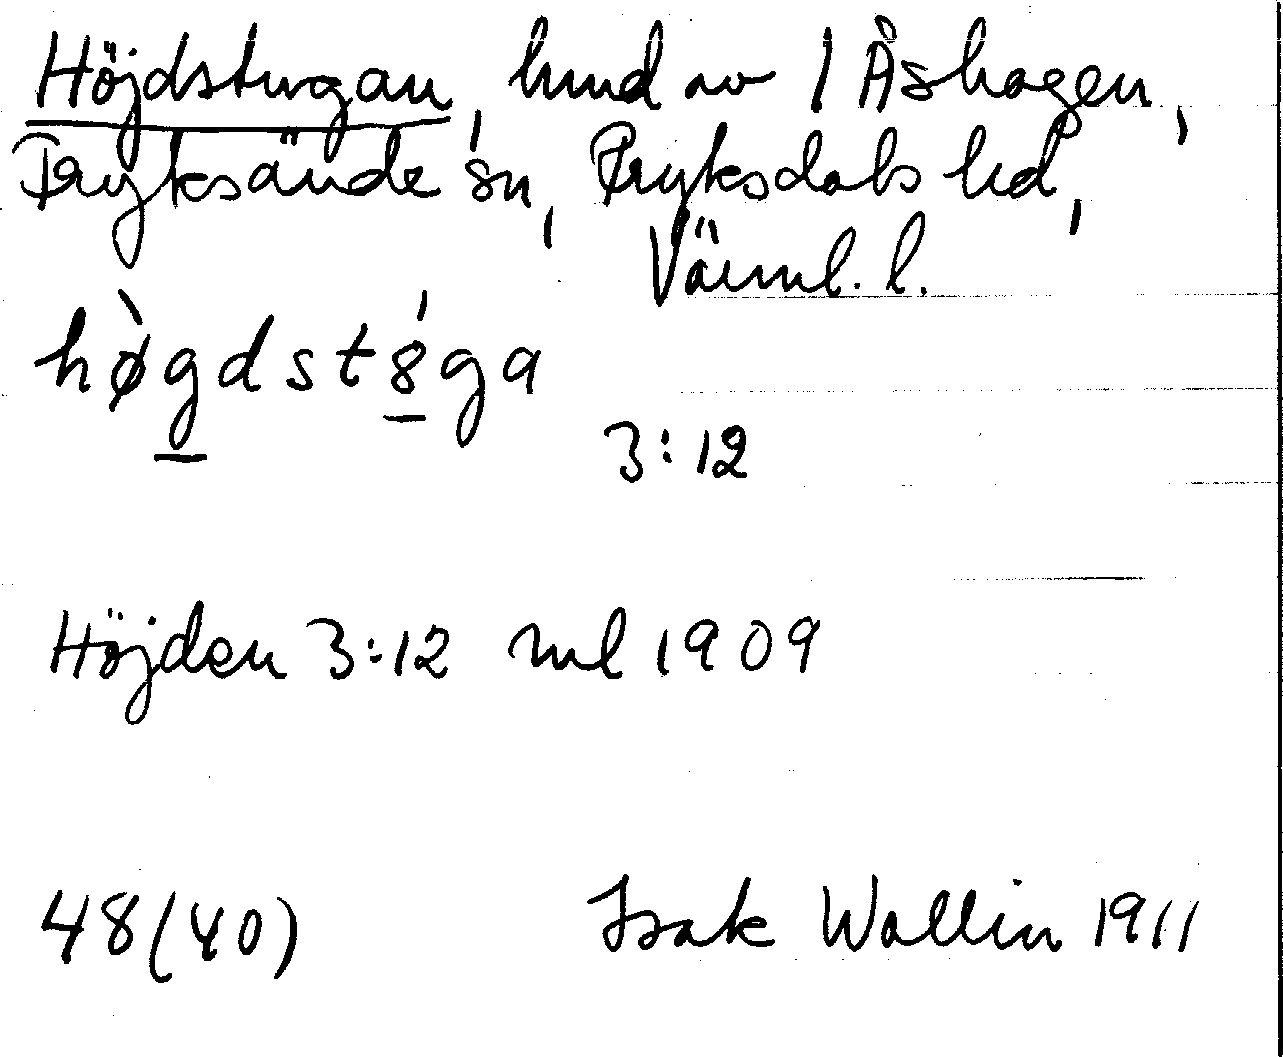 Höjdstugan, hmd av 1 Åshagen,
Fryksände sn, Fryksdals hd,
Värml. l.
hø̀gdst8́ga
3:12
Höjden 3:12 ml 1909
48(40) Isak Wallin 1911